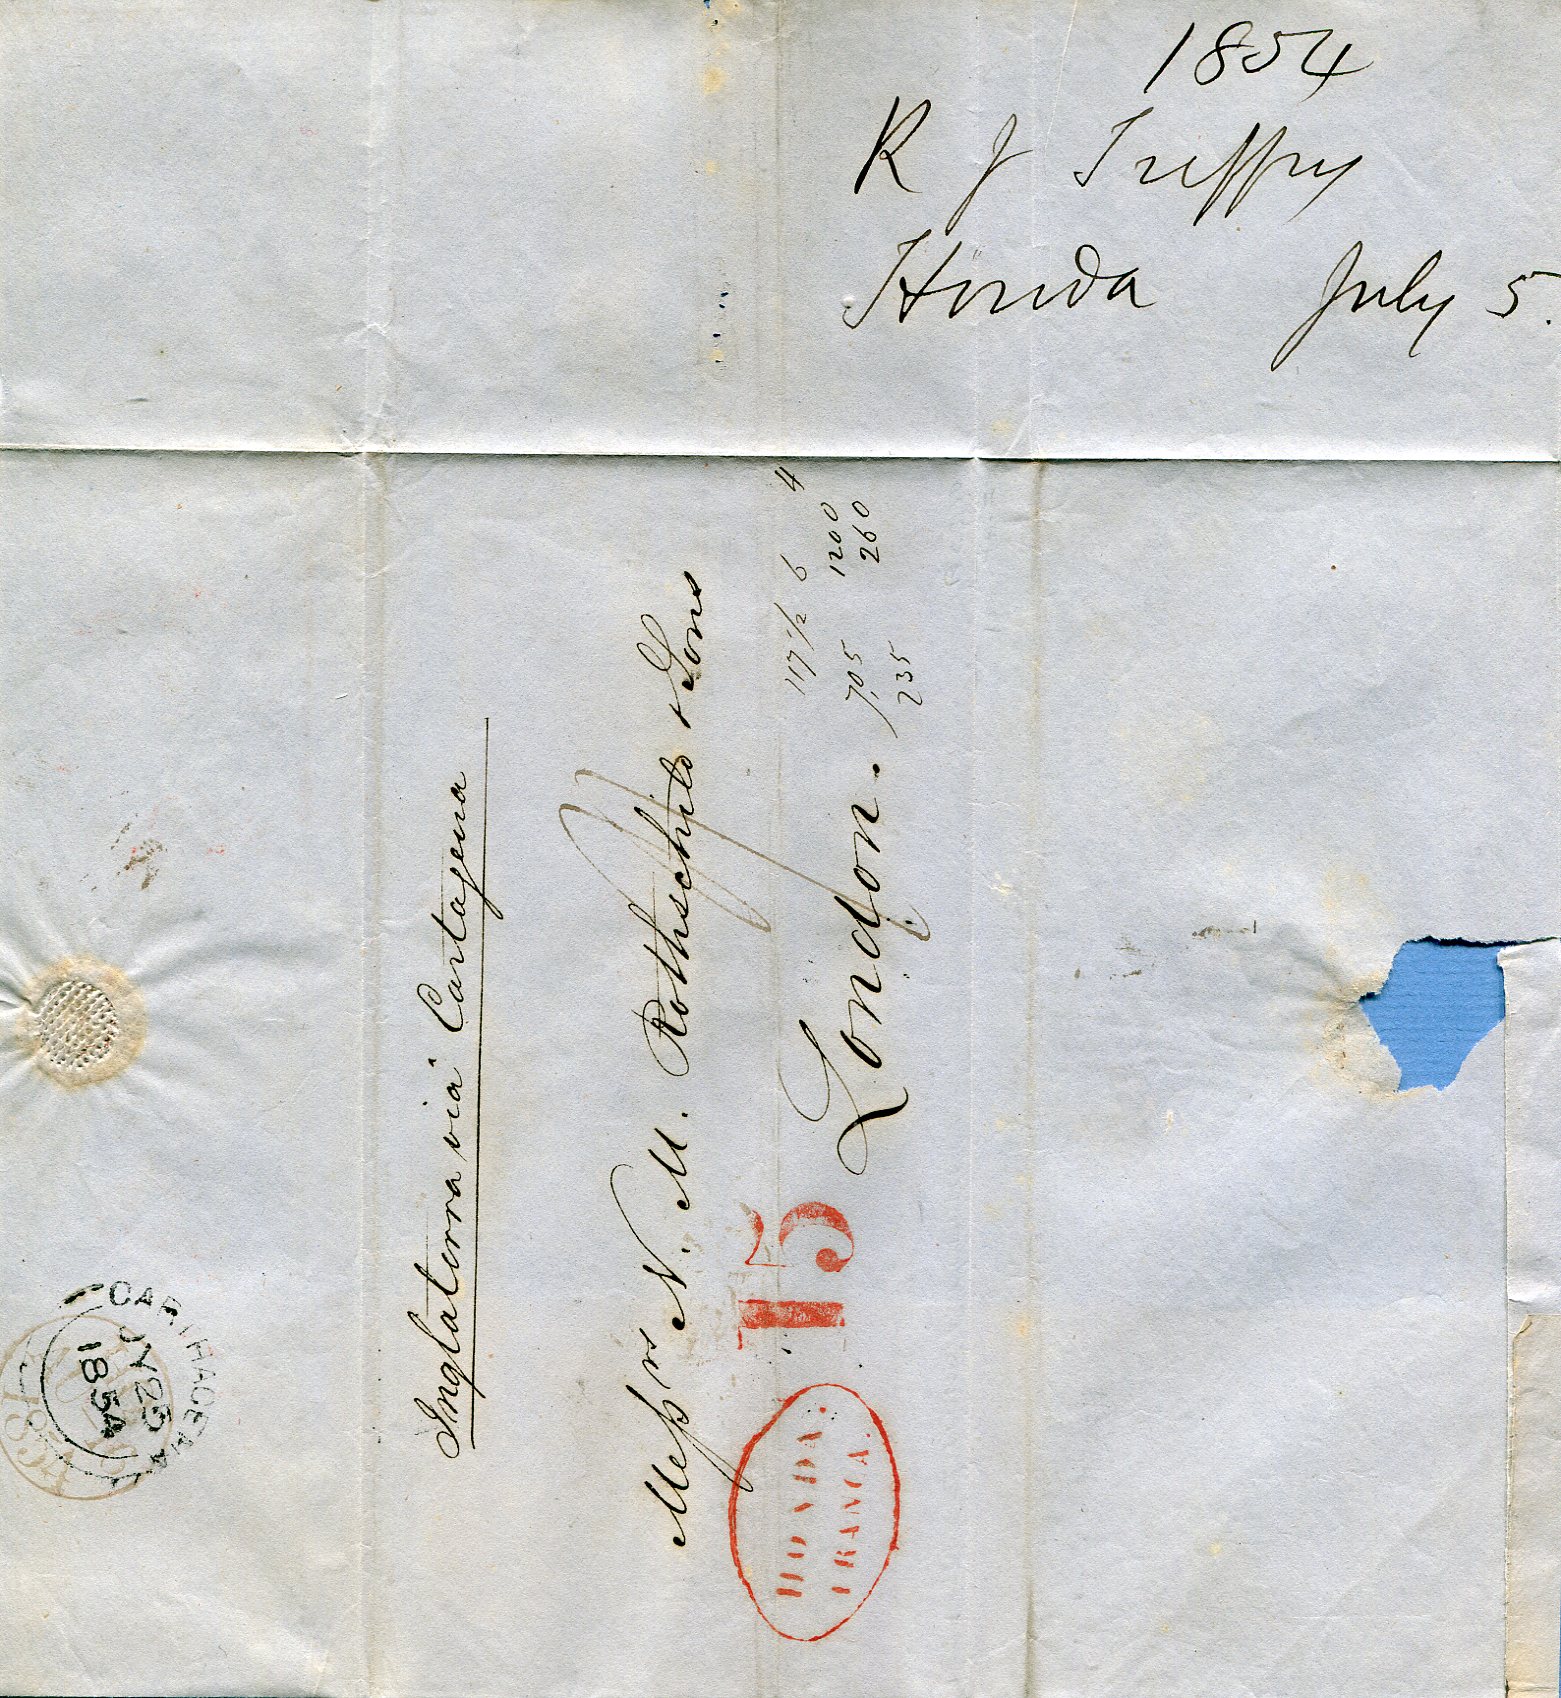 1854
R J Treffry
Honda July 5.
Inglaterra viá Cartagena
Messrs N. M. Rothschild & Sons
London.
117 1/2 6 4
705 1200
235 260
15
HONDA.
FRANCA.
CARTHAGENA
JY 23
1854